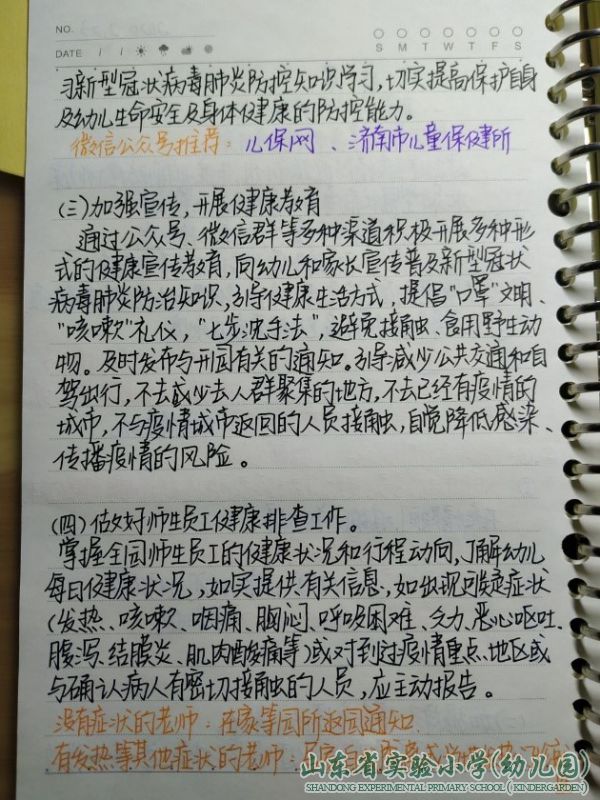 NO.
DATE / /
S M T W T F S
习新型冠状病毒肺炎防控知识学习,切实提高保护自身
及幼儿生命安全及身体健康的防控能力。
微信公众号推荐:儿保网、济南市儿童保健所
(三)加强宣传,开展健康教育
通过公众号、微信群等多种渠道积极开展多种形
式的健康宣传教育,向幼儿和家长宣传普及新型冠状
病毒肺炎防治知识,引导健康生活方式,提倡"口罩"文明、
"咳嗽"礼仪,"七步洗手法",避免接触、食用野生动
物。及时发布与开园有关的通知。引导减少公共交通和自
驾出行,不去或少去人群聚集的地方,不去已经有疫情的
城市,不与疫情城市返回的人员接触,自觉降低感染、
传播疫情的风险。
(四)做好师生员工健康排查工作。
掌握全园师生员工的健康状况和行程动向,了解幼儿
每日健康状况,如实提供有关信息,如出现可疑症状
(发热、咳嗽、咽痛、胸闷、呼吸困难、乏力、恶心呕吐、
腹泻、结膜炎、肌肉酸痛等)或对到过疫情重点地区或
与确认病人有密切接触的人员,应主动报告。
没有症状的老师:在家等园所返园通知
有发热等其他症状的老师:
山东省实验小学(幼儿园)
SHANDONG EXPERIMENTAL PRIMARY SCHOOL (KINDERGARDEN)